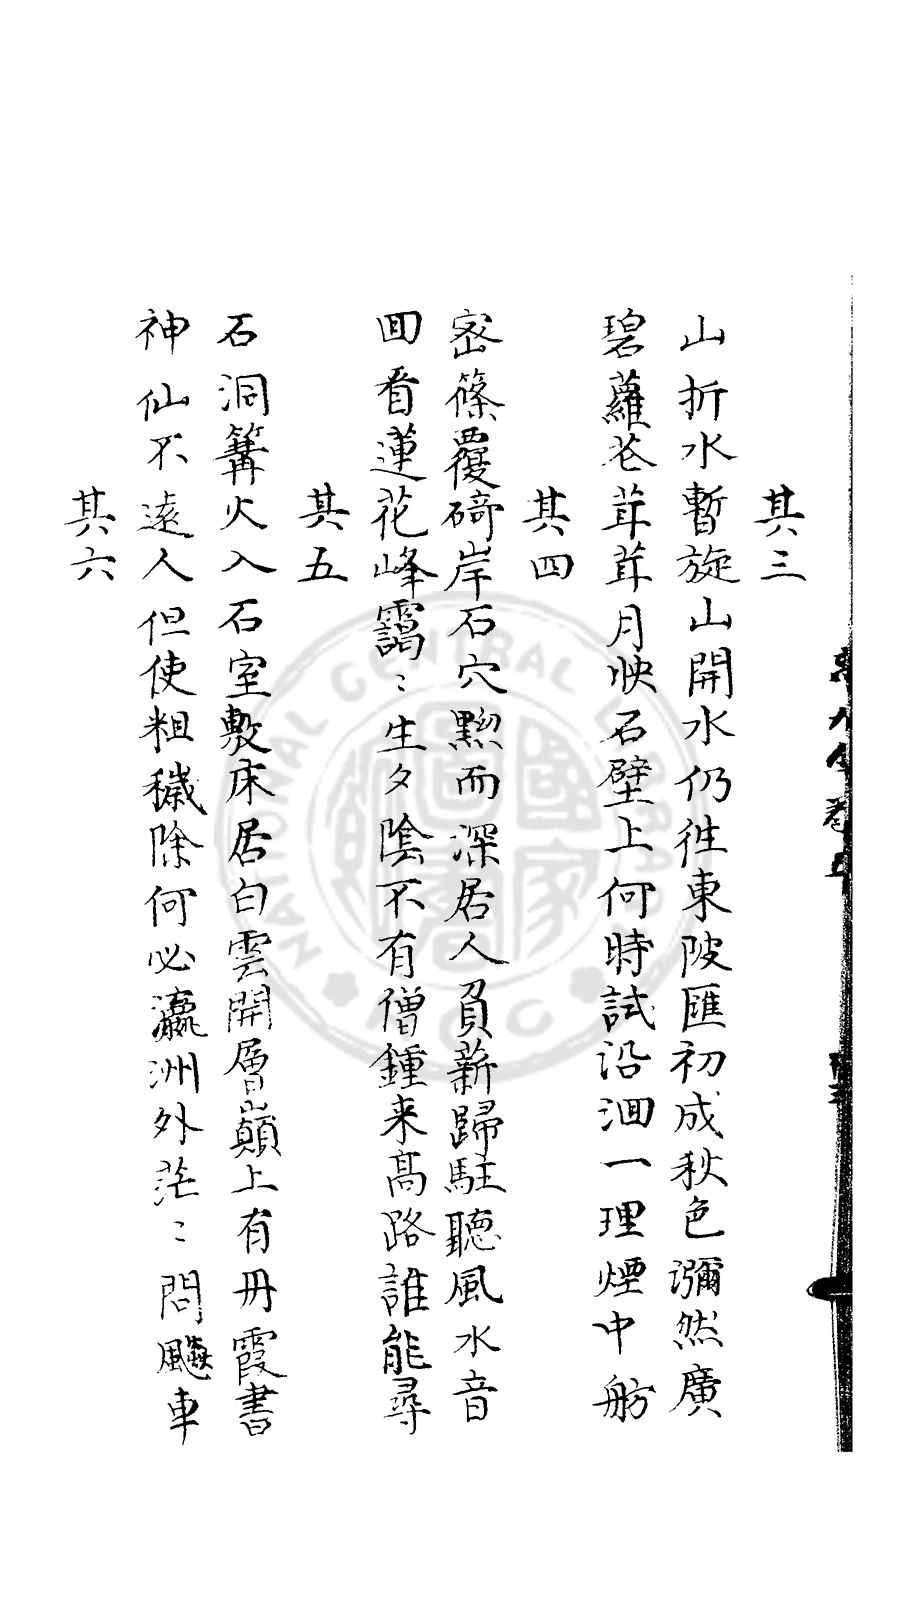 其三
山折水暫旋山開水仍徃東陂匯初成秋色瀰然廣
碧蘿花茸茸月映石壁上何時試沿洄一理煙中舫
其四
宻篠覆碕岸石穴黝而深居人負薪歸駐聽風水音
回看蓮花峰靄〻生夕陰不有僧鍾来髙路誰能尋
其五
石洞篝火入石室敷床居白雲開層巔上有丹霞書
神仙不遠人但使粗穢除何必瀛洲外茫〻問飈車
其六
NATIONAL CENTRAL LIBRARY
ROC
國家圖書館